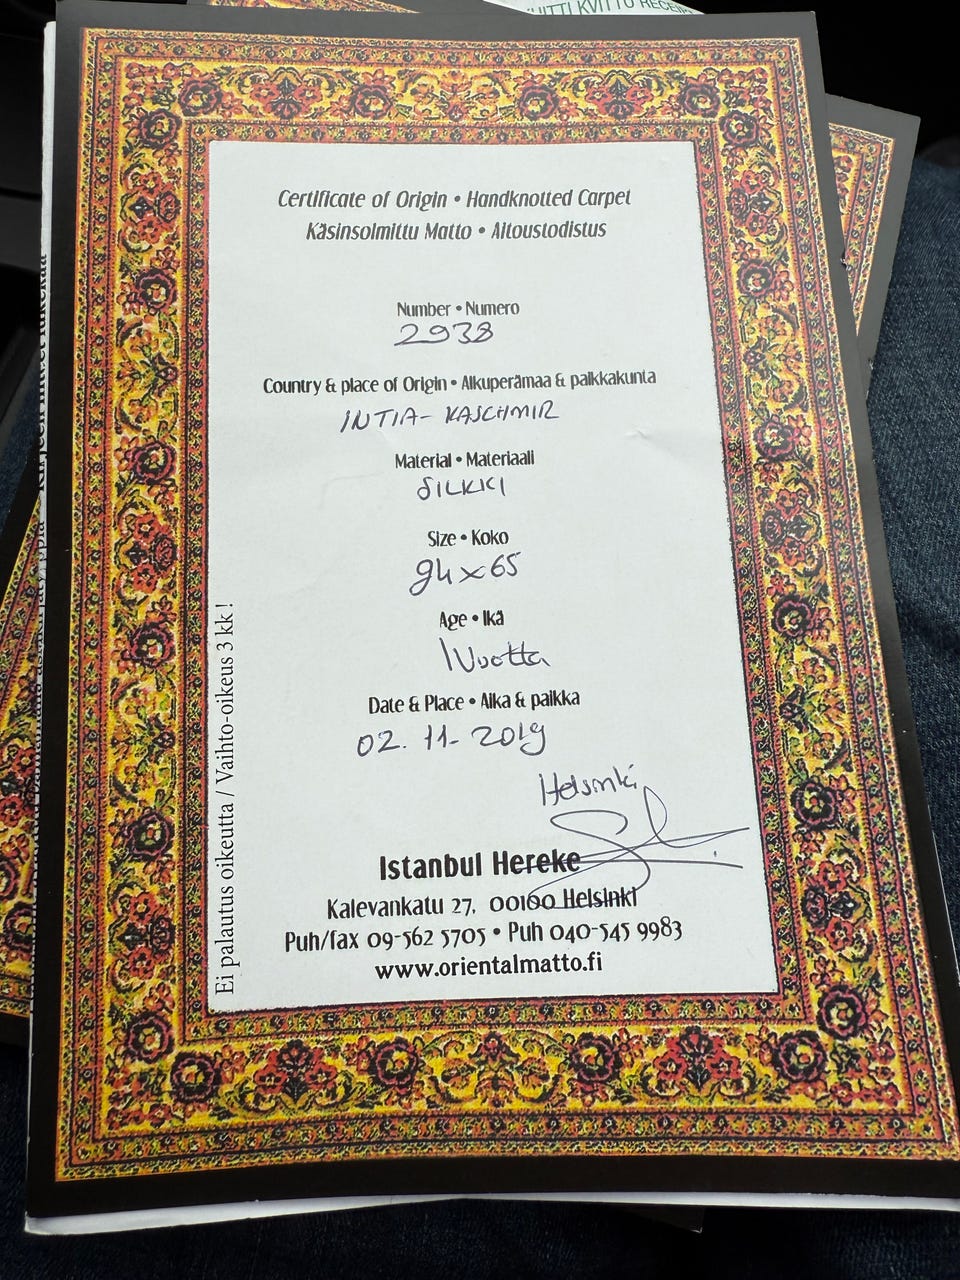 KUITTI KVITTO RECEIPT
Certificate of Origin • Handknotted Carpet
Käsinsolmittu Matto • Aitoustodistus
Number • Numero
2938
Country & place of Origin • Alkuperämaa & paikkakunta
INTIA- KASCHMIR
Material • Materiaali
SILKKI
Size • Koko
94x65
Age • Ikä
1Vuotta
Date & Place • Aika & paikka
02. 11- 2019
Helsinki
Istanbul Hereke
Kalevankatu 27, 00100 Helsinki
Puh/fax 09-562 5705 • Puh 040-545 9983
www.orientalmatto.fi
Ei palautus oikeutta / Vaihto-oikeus 3 kk !